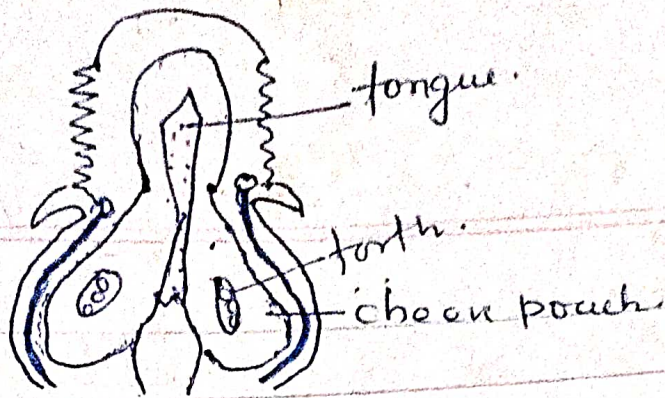 tongue.
forth.
cheek pouch.